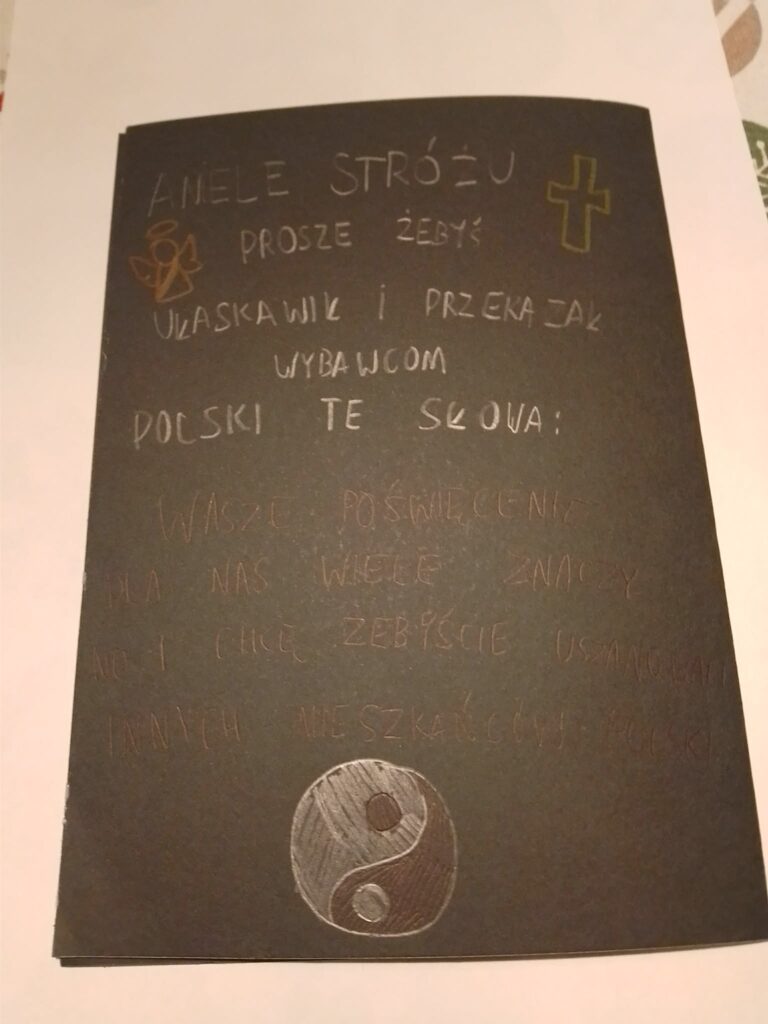 ANIELE STRÓŻU
PROSZE ŻEBYŚ
UŁASKAWIŁ I PRZEKAZAŁ
WYBAWCOM
POLSKI TE SŁOWA:
WASZE POŚWIĘCENIE
DLA NAS WIELE ZNACZY
NO I CHCĘ ŻEBYŚCIE USZANOWALI
INNYCH MIESZKAŃCÓW POLSKI